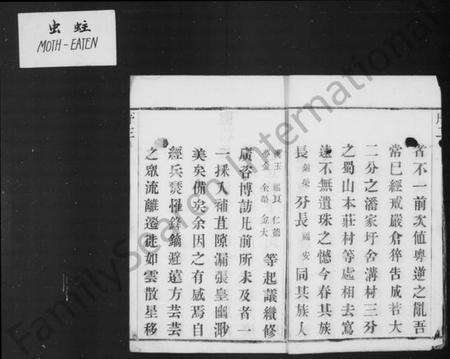 虫蛀
MOTH-EATEN
者不一前次値粤逆之亂吾
常已經戒嚴倉猝告成若大
二分之潘家圩舍溝村三分
之蜀山本莊村等處相去寫
遠不無遺珠之憾今春其族
長 分長 同其族人
等起議續修
廣咨博訪凡前所未及者一
一採入補苴隙漏張皇幽渺
美矣備矣余因之有感焉自
經兵燹惟鋒鏑避遠方芸芸
之眾流離遷徙如雲散星移
FamilySearch International